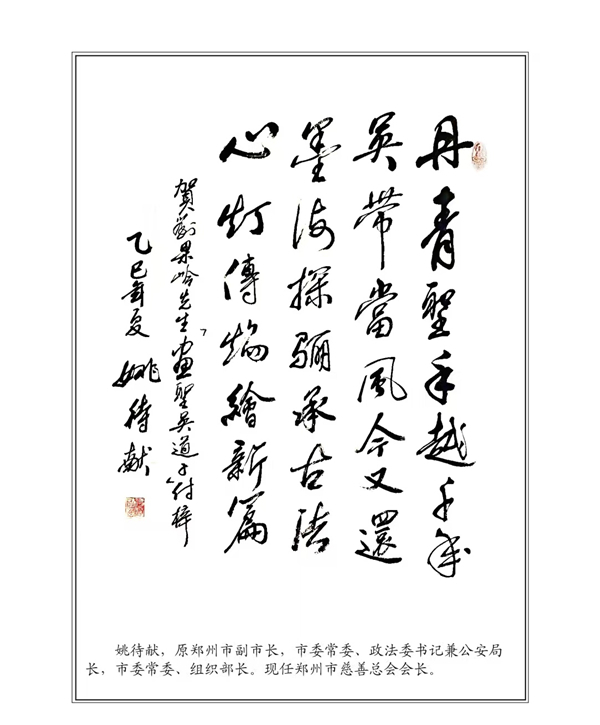 丹青聖手越千年
吳帶當風今又還
墨海探骊承古法
心灯傳焰繪新篇
賀劉果岭先生「画聖吳道子」付梓
乙巳年夏 姚待献
姚待献，原郑州市副市长，市委常委、政法委书记兼公安局
长，市委常委、组织部长。现任郑州市慈善总会会长。